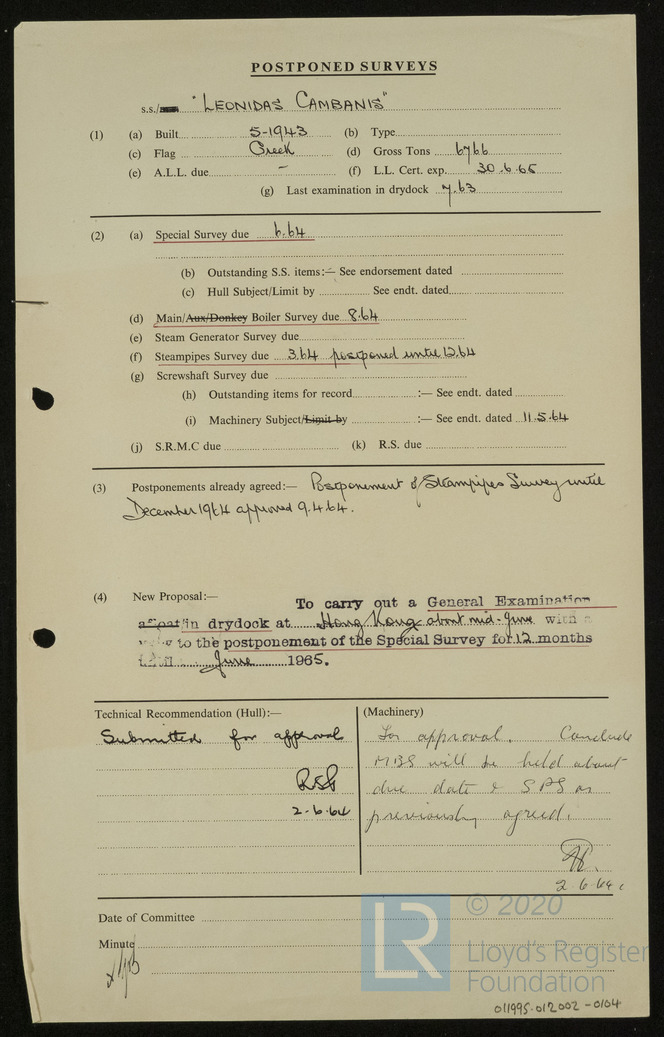 POSTPONED SURVEYS
s.s./ "LEONIDAS CAMBANIS"
(1) (a) Built 5-1943 (b) Type
(c) Flag Greek (d) Gross Tons 6766
(e) A.L.L. due – (f) L.L. Cert. exp. 30.6.65
(g) Last examination in drydock 7.63
(2) (a) Special Survey due 6.64
(b) Outstanding S.S. items:— See endorsement dated
(c) Hull Subject/Limit by See endt. dated
(d) Main/Aux/Donkey Boiler Survey due 8.64
(e) Steam Generator Survey due
(f) Steampipes Survey due 3.64 postponed until 12.64
(g) Screwshaft Survey due
(h) Outstanding items for record :— See endt. dated
(i) Machinery Subject/Limit by :— See endt. dated 11.5.64
(j) S.R.M.C due (k) R.S. due
(3) Postponements already agreed:— Postponement of Steampipes Survey until
December 1964 approved 9.4.64.
(4) New Proposal:—
To carry out a General Examination
afloat/in drydock at Hong Kong about mid-June with a
view to the postponement of the Special Survey for 12 months
until June 1965.
Technical Recommendation (Hull):—
Submitted for approval
RSP
2-6-64
(Machinery)
For approval. Conclude
MBS will be held about
due date & SPS as
previously agreed.
2.6.64
Date of Committee
Minute
© 2020
LR
Lloyd's Register
Foundation
011995-012002-0104